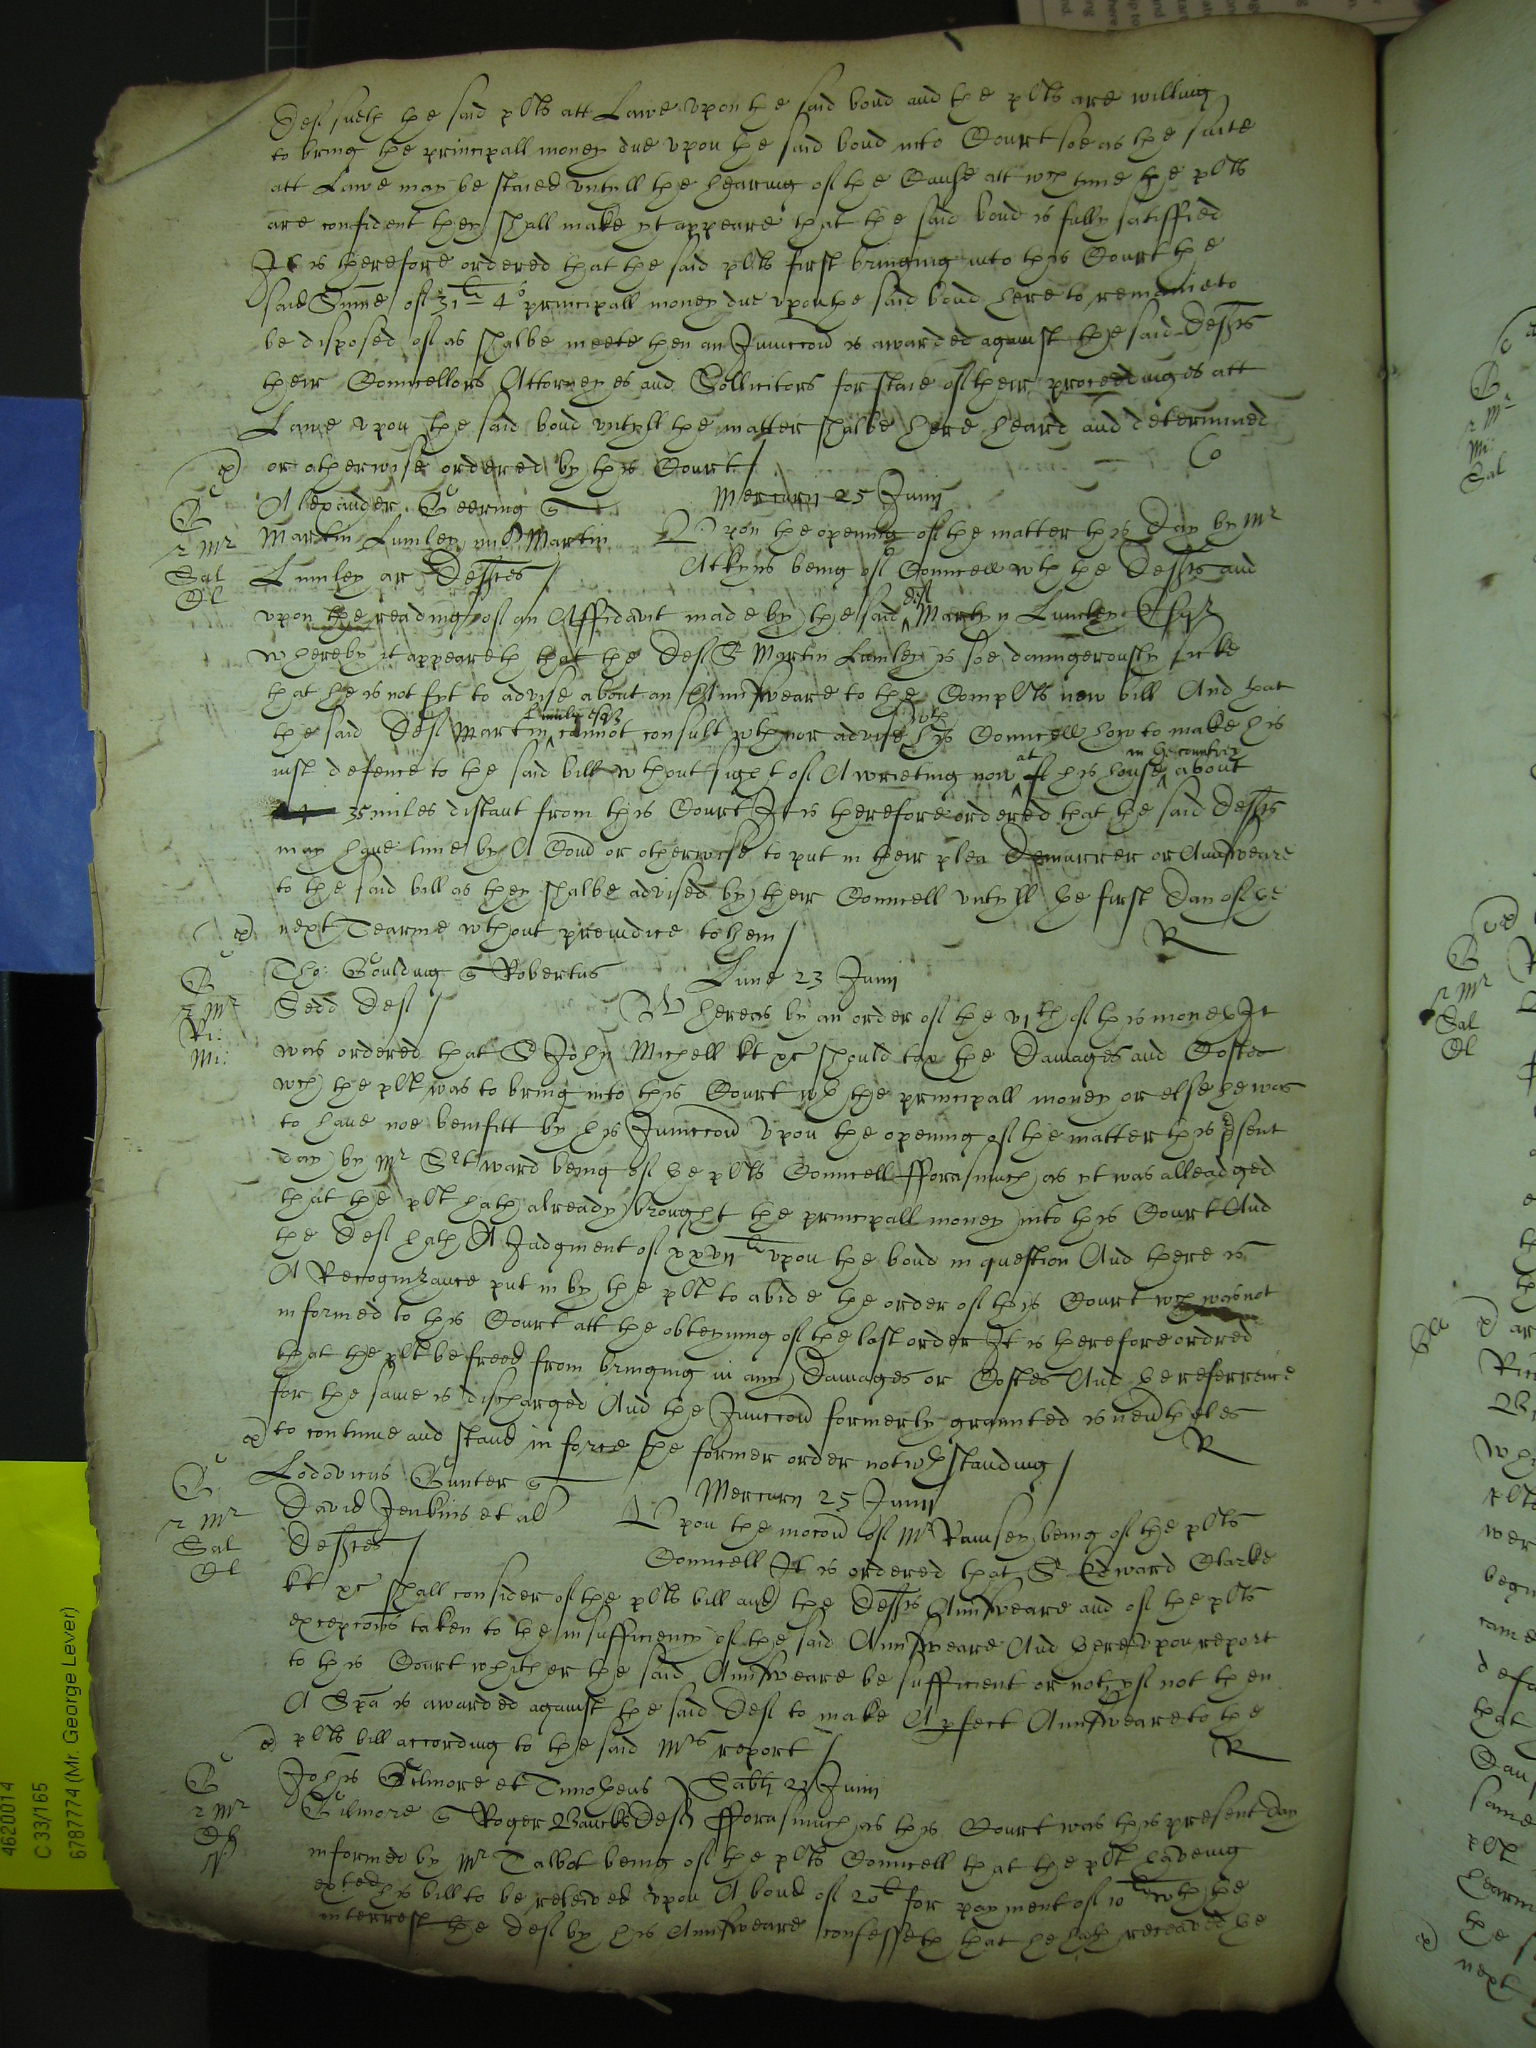 Deft sueth the said plts att Lawe vpon the said bond and the plts are willing
to bring the principall money due vpon the said bond into Court soe as the suite
att Lawe may be staied vntyll the hearing of the Cause att wch tyme the plts
are confident they shall make yt appeare that the said bond is fully satisffied
It is therefore ordered that the said plts first bringing into this Court the
said Summe of 31li 4s principall money due vpon the said bond here to remaine to
be disposed of as shalbe meete then an Iniunccon is awarded against the said Defts
their Councellors Attorneyes and Sollicitors for staie of their proceedinges att
Lawe vpon the said bond vntyll the matter shalbe here heard and determined
or otherwise ordered by this Court / Co
Mercurij 25 Junij
Alexander Geering
Martin Lumley Martin
Lumley ar Deftes /
Vpon the opening of the matter this Day by Mr
Atkyns being of Councell wth the Defts and
vpon the reading of an Affidavit made by the said deft Martyn Lumley Esqr
whereby it appeareth that the Deft Sr Martin Lumley is soe daungerously sicke
that he is not fyt to advise about an Aunsweare to the Complts new bill And that
the said Deft Martin Lumley esqr cannot consult wth nor advise wth his Councell how to make his
iust defence to the said bill wthout sight of A wrieting now at his house in the countrey about
35 miles distant from this Court It is therefore ordered that the said Defts
may haue time by A Comd or otherwise to put in their plea Demurrer or Aunsweare
to the said bill as they shalbe advised by their Councell vntyll the first Day of the
next Tearme wthout preiudice to them / R
Tho: Goulding Robertus
Sedd Deft /
Lune 23 Junij
Whereas by an order of the vith of this moneth It
was ordered that Sr John Michell kt &c should tax the Damages and Costes
wch the plt was to bring into this Court wth the principall money or else he was
to haue noe benifitt by his Iniunccon Vpon the opening of the matter this psent
day by Mr Srt ward being of the plts Councell fforasmuch as yt was alleadged
that the plt hath already brought the principall money into this Court And
the Deft hath A Judgment of xxvijli vpon the bond in question And there is
A Recognizance put in by the plt to abide the order of this Court wch was not
informed to this Court att the obteyning of the last order It is therefore ordred
that the plt be freed from bringing in any Damages or Costes And the referrence
for the same is discharged And the Iniunccon formerly graunted is neuertheles
to continue and stand in force the former order notwthstanding / R
Lodovicus Gunter
David Jenkins et al
Deftes /
Mercurij 25 Junij
Vpon the mocon of Mr Ramsey being of the plts
Councell It is ordered that Sr Edward Clarke
kt &c shall consider of the plts bill and the Defts Aunsweare and of the plts
excepcons taken to the insufficiency of the said Aunsweare And therevpon report
to this Court whither the said Aunsweare be sufficient or not yf not then
A Spa is awarded against the said Deft to make A pfect Aunsweare to the
plts bill according to the said Mrs report / R
Johis Gilmore et Timotheus
Gilmore Roger Bancks Deft
Sabti 2 Junij
fforasmuch as this Court was this present Day
informed by Mr Talbot being of the plts Councell that the plt haveing
his bill to be releived vpon A bond of 20li for payment of 10li wth the
interrest the Deft by his Aunsweare confesseth that he hath receaved the
4620014
C 33/165
6787774 (Mr. George Lever)